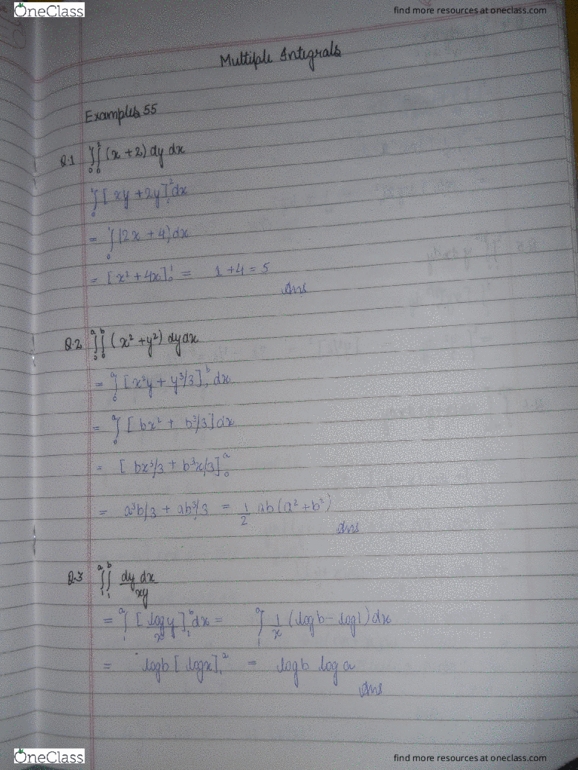 OneClass
find more resources at oneclass.com
Multiple Integrals
Examples 55
Q.1 ∫₀¹∫₀² (x + 2) dy dx
∫₀¹ [xy + 2y]₀² dx
= ∫₀¹ (2x + 4) dx
= [x² + 4x]₀¹ = 1 + 4 = 5
Ans
Q.2 ∫₀ᵃ∫₀ᵇ (x² + y²) dy dx
= ∫₀ᵃ [x²y + y³/3]₀ᵇ dx
= ∫₀ᵃ [bx² + b³/3] dx
= [bx³/3 + b³x/3]₀ᵃ
= a³b/3 + ab³/3 = 1/2 ab (a² + b²)
Ans
Q.3 ∫₁ᵃ∫₁ᵇ dy dx / xy
= ∫₁ᵃ [log y / x]₁ᵇ dx = ∫₁ᵃ 1/x (log b - log 1) dx
= log b [log x]₁² = log b log a
Ans
OneClass
find more resources at oneclass.com